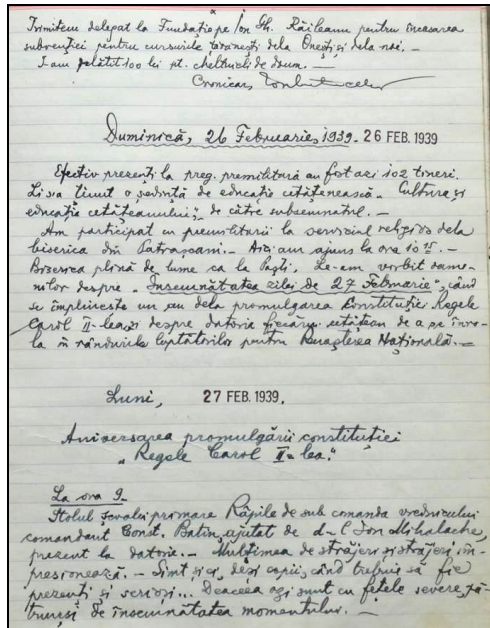 Trimitem delegat la Fundație pe Ion Gh. Răileanu pentru încasarea
subvenției pentru cursurile țărănești dela Onești și dela noi. —
I-am plătit 100 lei pt. cheltueli de drum. —
Cronicar,
Duminică, 26 Februarie, 1939. 26 FEB. 1939
Efectiv prezenți la preg. premilitară au fost azi 102 tineri.
Li s'a ținut o ședință de educație cetățenească. „Cultura și
educația cetățeanului", de către subsemnatul. —
Am participat cu premilitarii la serviciul religios dela
biserica din Patrașcani. — Aici am ajuns la ora 10 15. —
Biserica plină de lume ca la Paști. Le-am vorbit oame-
nilor despre „Însemnătatea zilei de 27 Februarie", când
se împlinește un an dela promulgarea Constituției Regele
Carol II-lea și despre datoria fiecărui cetățean de a se înro-
la în rândurile luptătorilor pentru Renașterea Națională. —
Luni, 27 FEB. 1939.
Aniversarea promulgării constituției
„Regele Carol II-lea."
La ora 9.
Stolul școalei primare Râpile de sub comanda vrednicului
comandant Const. Batin, ajutat de d-l Ion Mihalache,
prezent la datorie. — Mulțimea de străjeri și străjere im-
presionează. — Simt și ei, deși copii, când trebuie să fie
prezenți și serioși... Deaceea azi sunt cu fețele severe, pă-
trunși de însemnătatea momentului. —